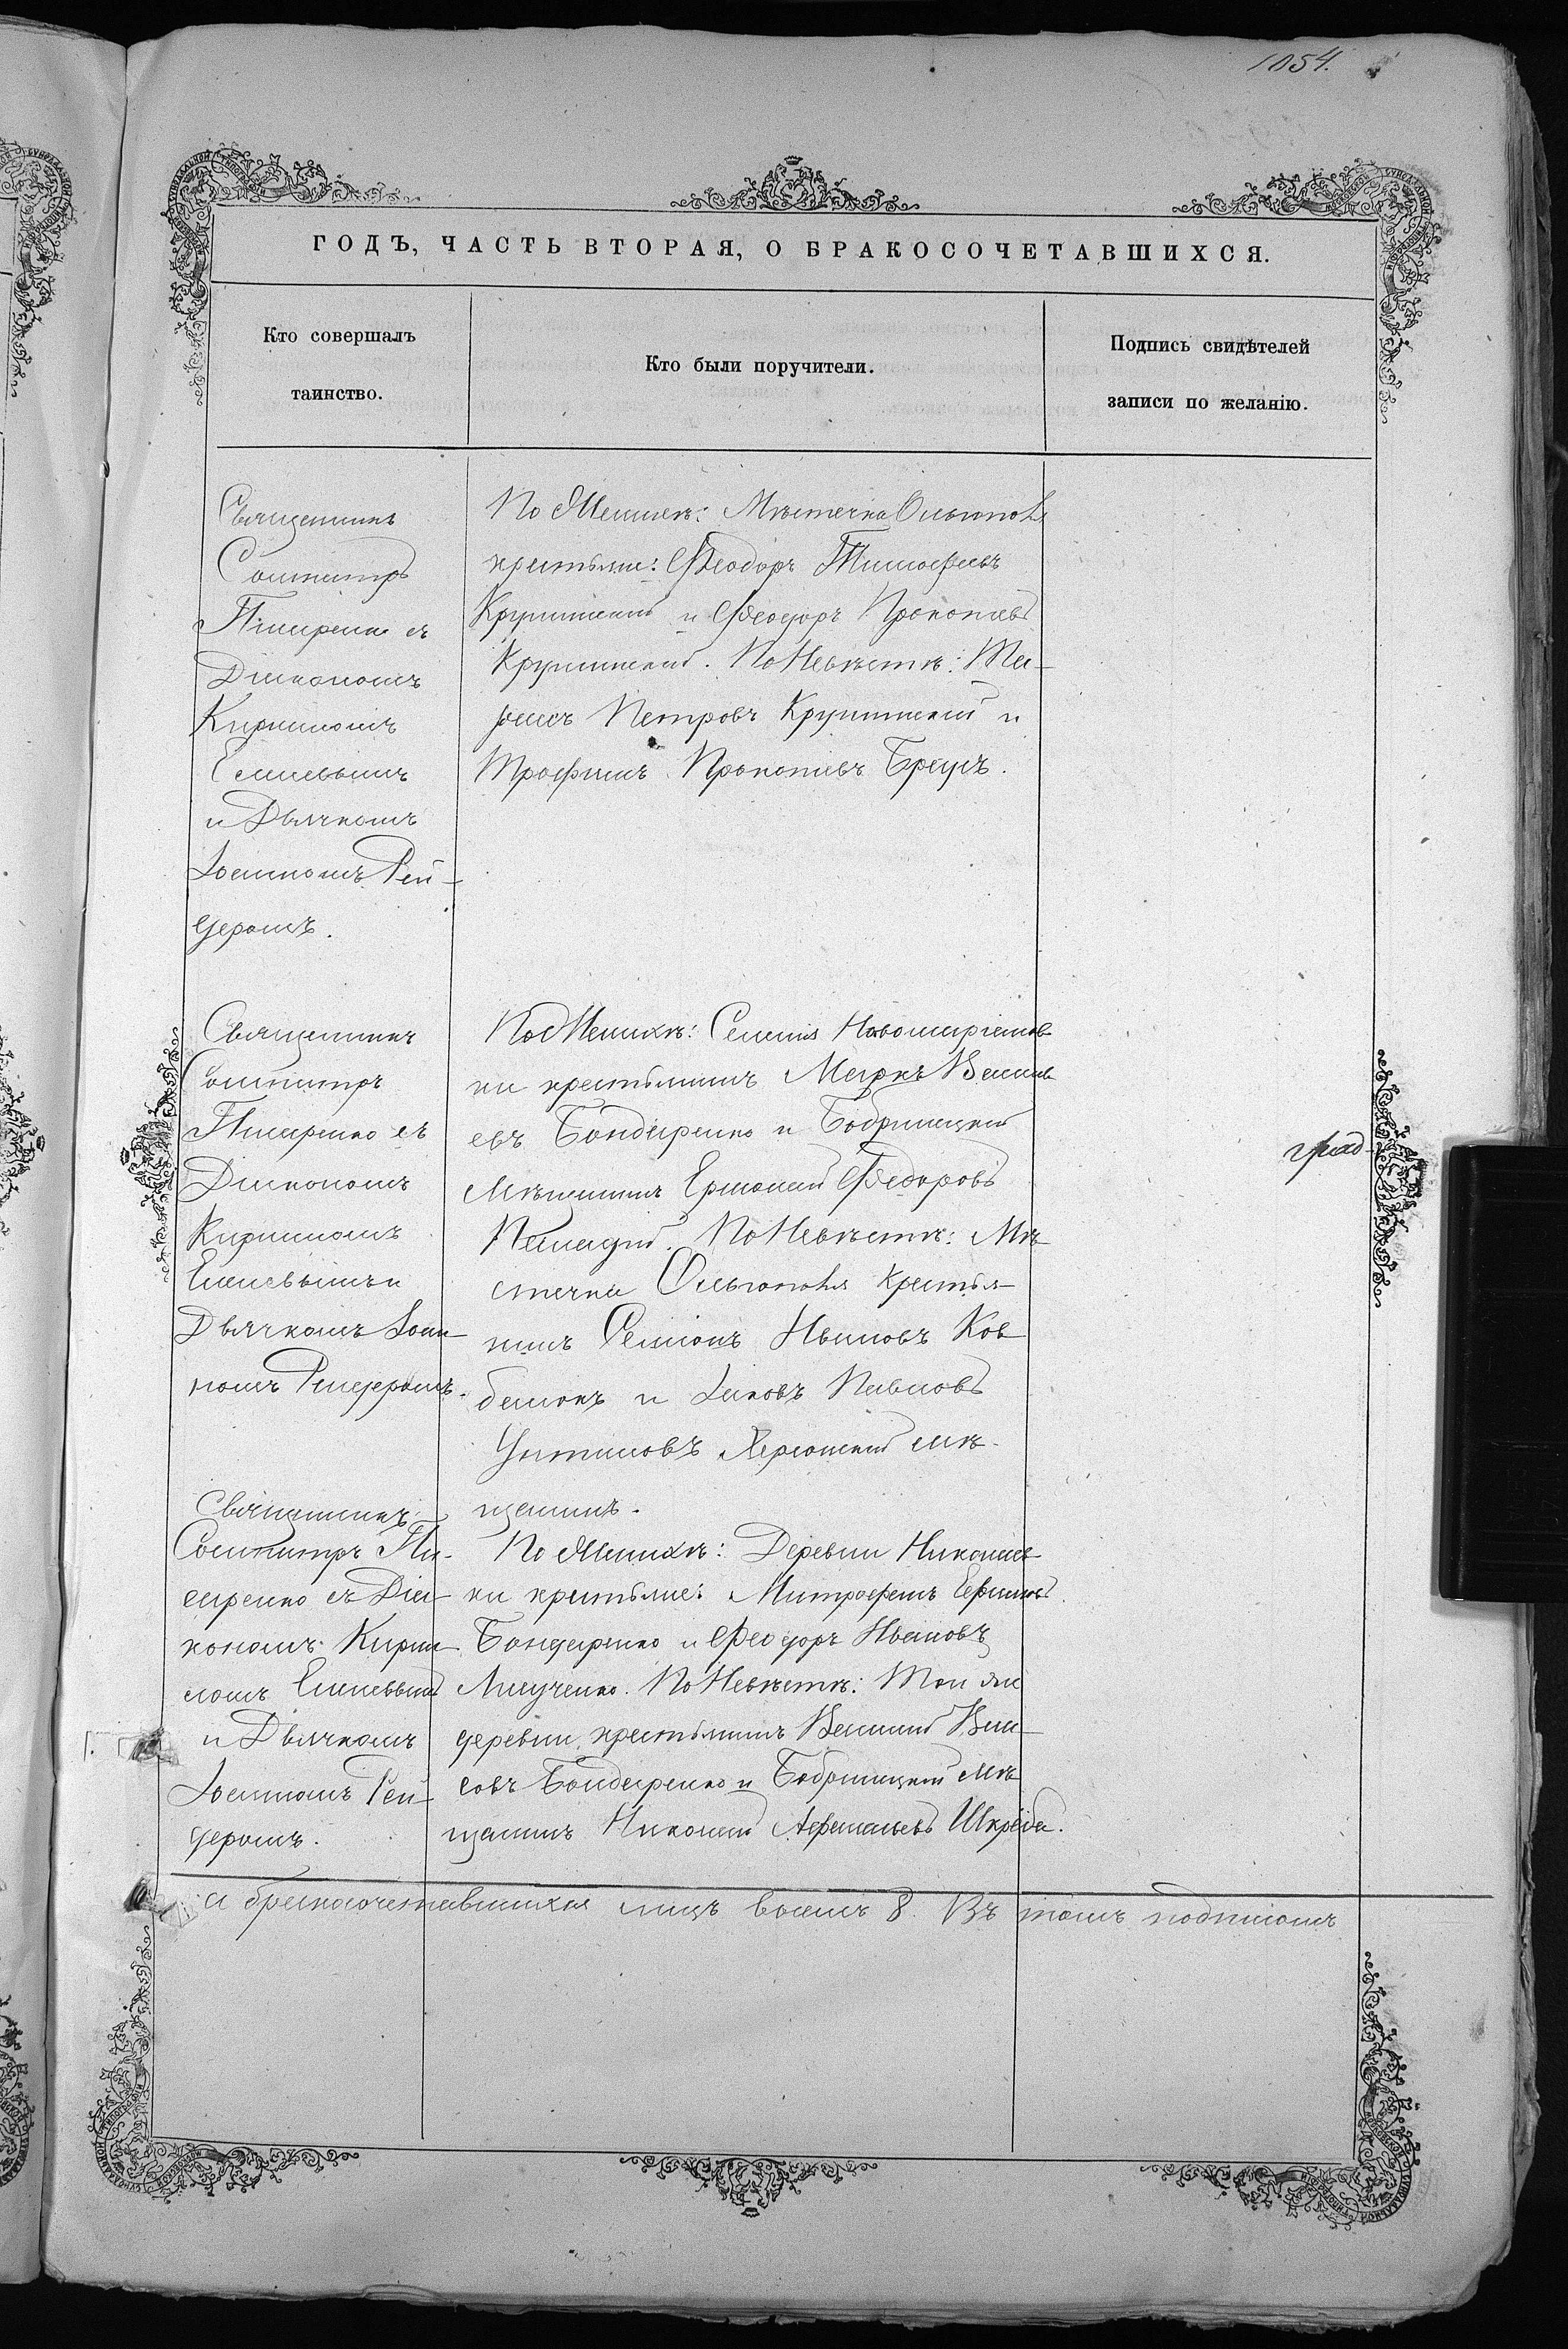 1054.
ГОДЪ, ЧАСТЬ ВТОРАЯ, О БРАКОСОЧЕТАВШИХСЯ.
Кто совершалъ
таинство.
Кто были поручители.
Подпись свидѣтелей
записи по желанію.
Священникъ
Сосипатръ
Писаренко съ
Діакономъ
Кириломъ
и Дьячкомъ
Іоанномъ Рей-
деромъ.
По Женихѣ: Мѣстечка Ольгополя
крестьяне: Феодоръ Тимофеевъ
Крупницкій и Феодоръ Прокопіевъ
Крупницкій. По Невѣстѣ: Та-
расъ Петровъ Крупницкій и
Трофимъ Прокопіевъ Брусъ.
Священникъ
Сосипатръ
Писаренко съ
Діакономъ
Кириломъ
Дьячкомъ Іоан-
номъ Рейдеромъ.
По Женихѣ: Селенія Новомаріинов-
ки крестьянинъ Маркъ Василі-
евъ Бондаренко и Бобринецкій
мѣщанинъ Ермолай Федоровъ
По Невѣстѣ: Мѣ-
стечка Ольгополя крестья-
нинъ Семіонъ Ивановъ Ков-
банъ и Іаковъ Павловъ
Херсонскій мѣ-
щанинъ.
Священникъ
Сосипатръ Пи-
саренко съ Діа-
кономъ Кири-
ломъ
и Дьячкомъ
Іоанномъ Рей-
деромъ.
По Женихѣ: Деревни Николаев-
ки крестьяне: Митрофанъ Ефимовъ
Бондаренко и Феодоръ Ивановъ
По Невѣстѣ: Той же
деревни крестьянинъ Василій Вла-
совъ Бондаренко и Бобринецкій мѣ-
щанинъ Николай Афанасьевъ Шкреба.
град-
а бракосочетавшихся лицъ восемь 8. Въ томъ подписомъ